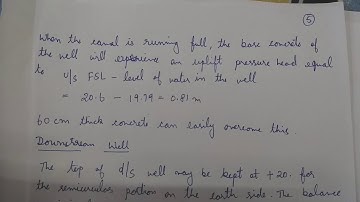 5
When the canal is running full, the base concrete of
the well will experience an uplift pressure head equal
to U/S FSL - level of water in the well
= 20.6 - 19.79 = 0.81 m
60 cm thick concrete can easily overcome this.
Downstream Well
The top of d/s well may be kept at +20. for
the semicircular portion on the earth side. The balance